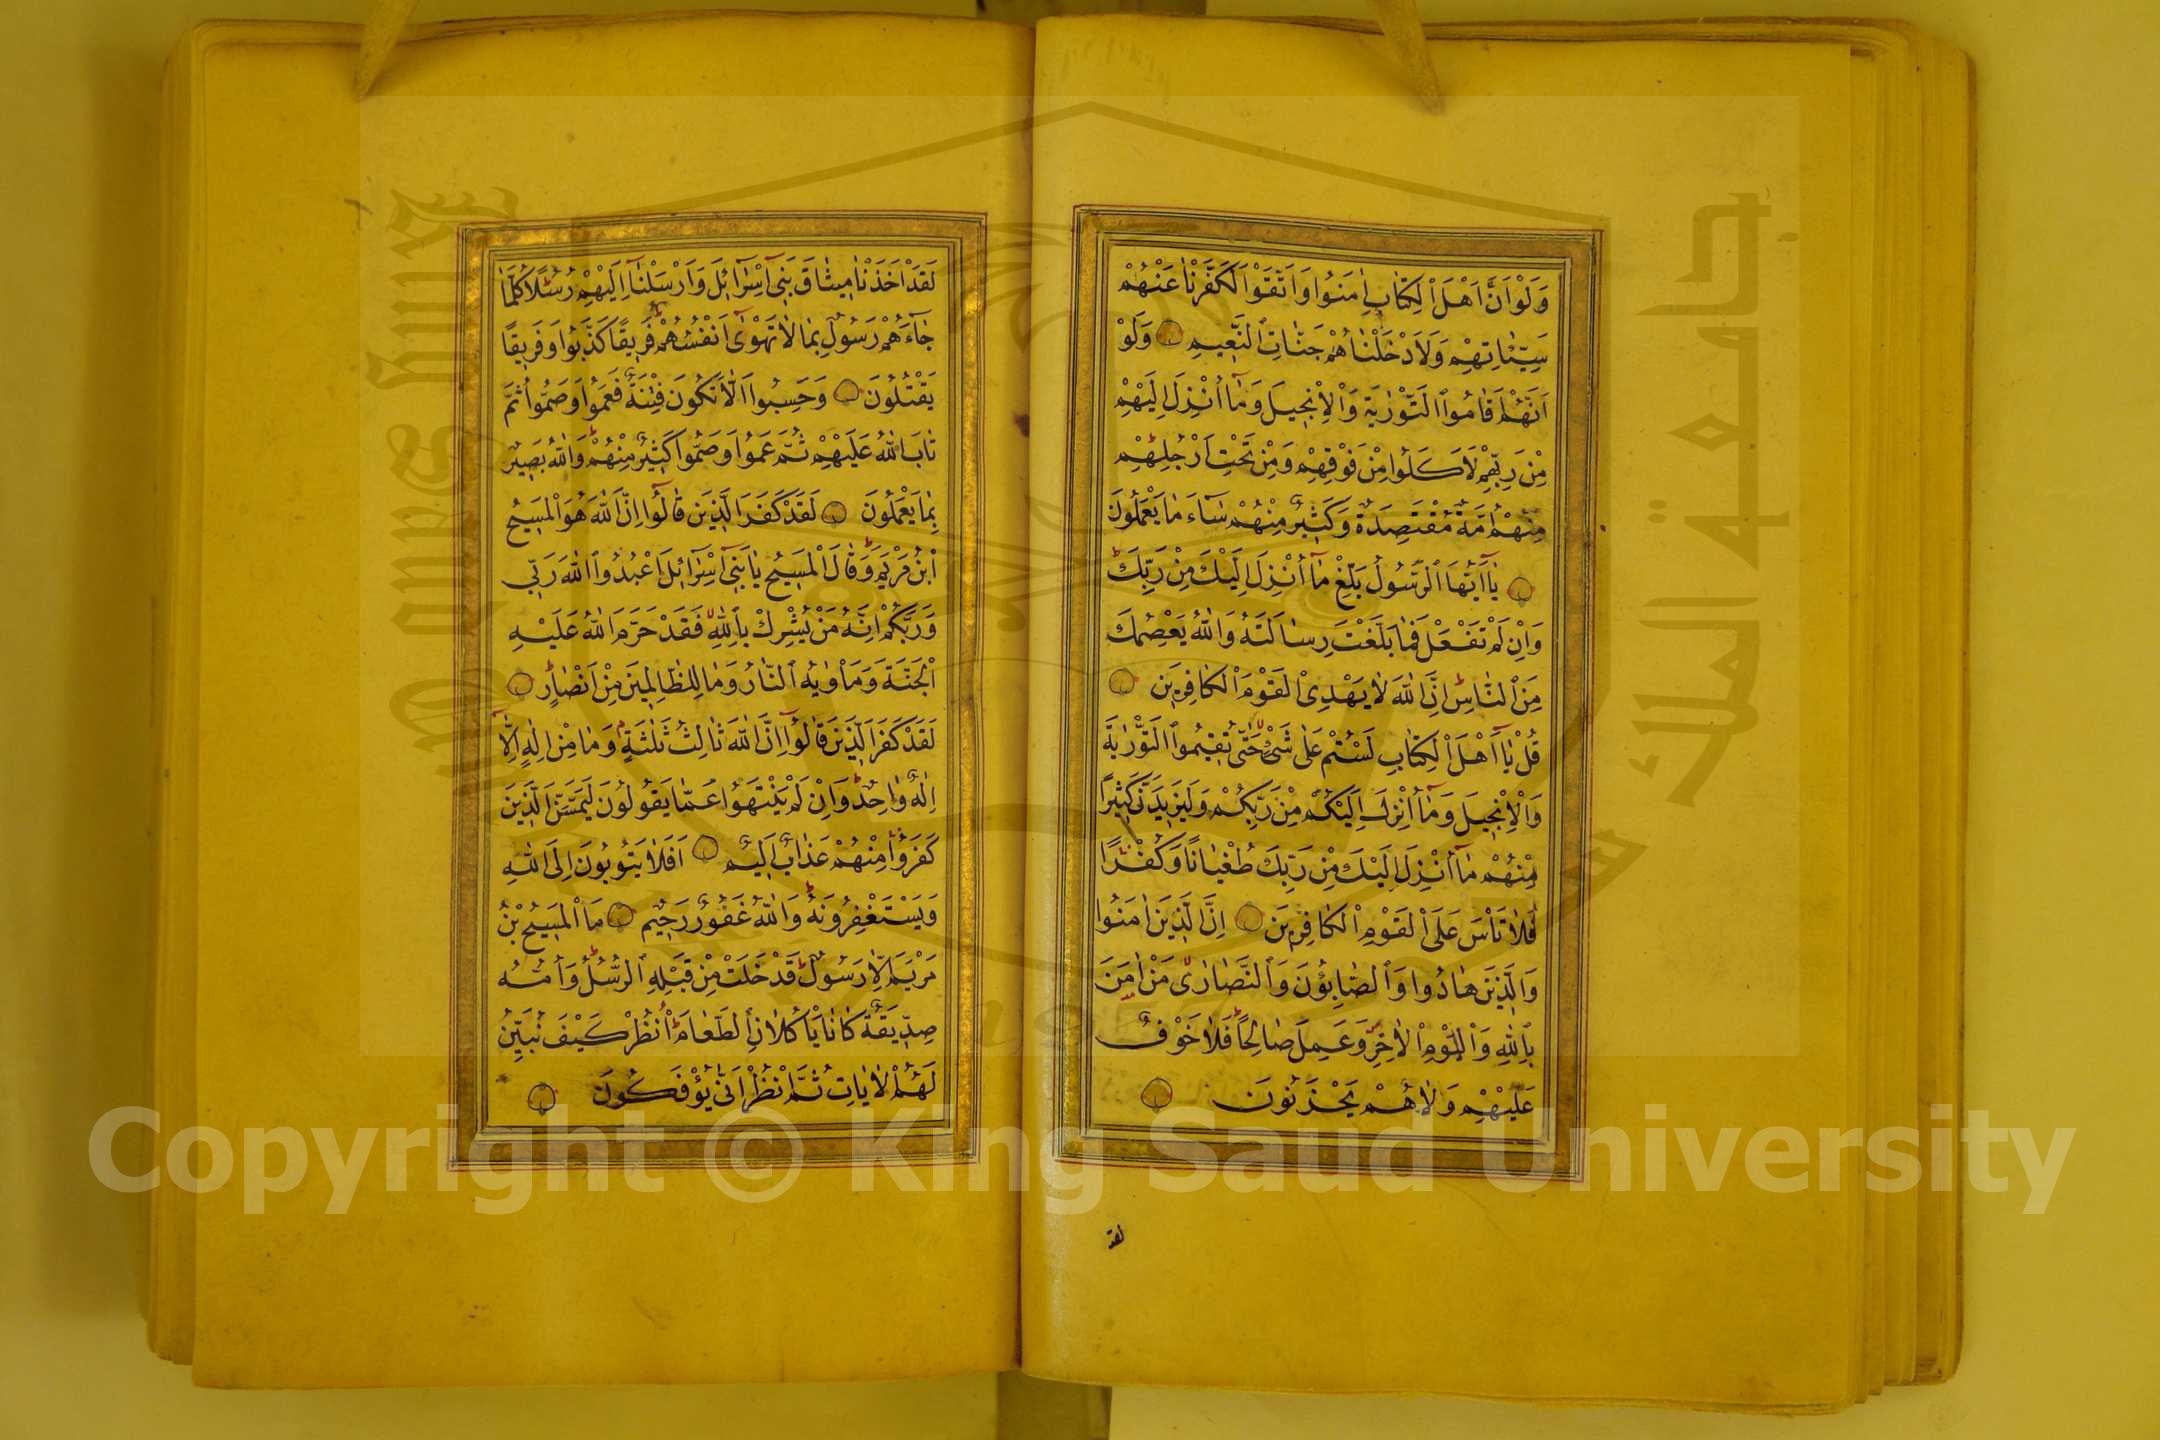 وَلَوْ اَنَّ اَهْلَ الْكِتَابِ اٰمَنُوا وَاتَّقَوْا لَكَفَّرْنَا عَنْهُمْ
سَيِّـَٔاتِهِمْ وَلَاَدْخَلْنَاهُمْ جَنَّاتِ النَّعِيمِ وَلَوْ
اَنَّهُمْ اَقَامُوا التَّوْرٰيةَ وَالْاِنْجِيلَ وَمَآ اُنْزِلَ اِلَيْهِمْ
مِنْ رَبِّهِمْ لَاَكَلُوا مِنْ فَوْقِهِمْ وَمِنْ تَحْتِ اَرْجُلِهِمْ
مِنْهُمْ اُمَّةٌ مُقْتَصِدَةٌ وَكَثِيرٌ مِنْهُمْ سَآءَ مَا يَعْمَلُونَ
يَآ اَيُّهَا الرَّسُولُ بَلِّغْ مَآ اُنْزِلَ اِلَيْكَ مِنْ رَبِّكَ
وَاِنْ لَمْ تَفْعَلْ فَمَا بَلَّغْتَ رِسَالَتَهُ وَاللّٰهُ يَعْصِمُكَ
مِنَ النَّاسِ اِنَّ اللّٰهَ لَا يَهْدِى الْقَوْمَ الْكَافِرِينَ
قُلْ يَآ اَهْلَ الْكِتَابِ لَسْتُمْ عَلٰى شَىْءٍ حَتّٰى تُقِيمُوا التَّوْرٰيةَ
وَالْاِنْجِيلَ وَمَآ اُنْزِلَ اِلَيْكُمْ مِنْ رَبِّكُمْ وَلَيَزِيدَنَّ كَثِيرًا
مِنْهُمْ مَآ اُنْزِلَ اِلَيْكَ مِنْ رَبِّكَ طُغْيَانًا وَكُفْرًا
فَلَا تَأْسَ عَلَى الْقَوْمِ الْكَافِرِينَ اِنَّ الَّذِينَ اٰمَنُوا
وَالَّذِينَ هَادُوا وَالصَّابِؤُنَ وَالنَّصَارٰى مَنْ اٰمَنَ
بِاللّٰهِ وَالْيَوْمِ الْاٰخِرِ وَعَمِلَ صَالِحًا فَلَا خَوْفٌ
عَلَيْهِمْ وَلَا هُمْ يَحْزَنُونَ
لقد
لَقَدْ اَخَذْنَا مِيثَاقَ بَنِىٓ اِسْرَآئِلَ وَاَرْسَلْنَآ اِلَيْهِمْ رُسُلًا كُلَّمَا
جَآءَهُمْ رَسُولٌ بِمَا لَا تَهْوٰىٓ اَنْفُسُهُمْ فَرِيقًا كَذَّبُوا وَفَرِيقًا
يَقْتُلُونَ وَحَسِبُوا اَلَّا تَكُونَ فِتْنَةٌ فَعَمُوا وَصَمُّوا ثُمَّ
تَابَ اللّٰهُ عَلَيْهِمْ ثُمَّ عَمُوا وَصَمُّوا كَثِيرٌ مِنْهُمْ وَاللّٰهُ بَصِيرٌ
بِمَا يَعْمَلُونَ لَقَدْ كَفَرَ الَّذِينَ قَالُوٓا اِنَّ اللّٰهَ هُوَ الْمَسِيحُ
ابْنُ مَرْيَمَ وَقَالَ الْمَسِيحُ يَا بَنِىٓ اِسْرَآئِلَ اعْبُدُوا اللّٰهَ رَبِّى
وَرَبَّكُمْ اِنَّهُ مَنْ يُشْرِكْ بِاللّٰهِ فَقَدْ حَرَّمَ اللّٰهُ عَلَيْهِ
الْجَنَّةَ وَمَأْوٰيهُ النَّارُ وَمَا لِلظَّالِمِينَ مِنْ اَنْصَارٍ
لَقَدْ كَفَرَ الَّذِينَ قَالُوٓا اِنَّ اللّٰهَ ثَالِثُ ثَلٰثَةٍ وَمَا مِنْ اِلٰهٍ اِلَّآ
اِلٰهٌ وَاحِدٌ وَاِنْ لَمْ يَنْتَهُوا عَمَّا يَقُولُونَ لَيَمَسَّنَّ الَّذِينَ
كَفَرُوا مِنْهُمْ عَذَابٌ اَلِيمٌ اَفَلَا يَتُوبُونَ اِلَى اللّٰهِ
وَيَسْتَغْفِرُونَهُ وَاللّٰهُ غَفُورٌ رَحِيمٌ مَا الْمَسِيحُ بْنُ
مَرْيَمَ اِلَّا رَسُولٌ قَدْ خَلَتْ مِنْ قَبْلِهِ الرُّسُلُ وَاُمُّهُ
صِدِّيقَةٌ كَانَا يَأْكُلَانِ الطَّعَامَ اُنْظُرْ كَيْفَ نُبَيِّنُ
لَهُمُ الْاٰيَاتِ ثُمَّ انْظُرْ اَنّٰى يُؤْفَكُونَ
جامعة الملك سعود
King Saud University
1957
Copyright © King Saud University